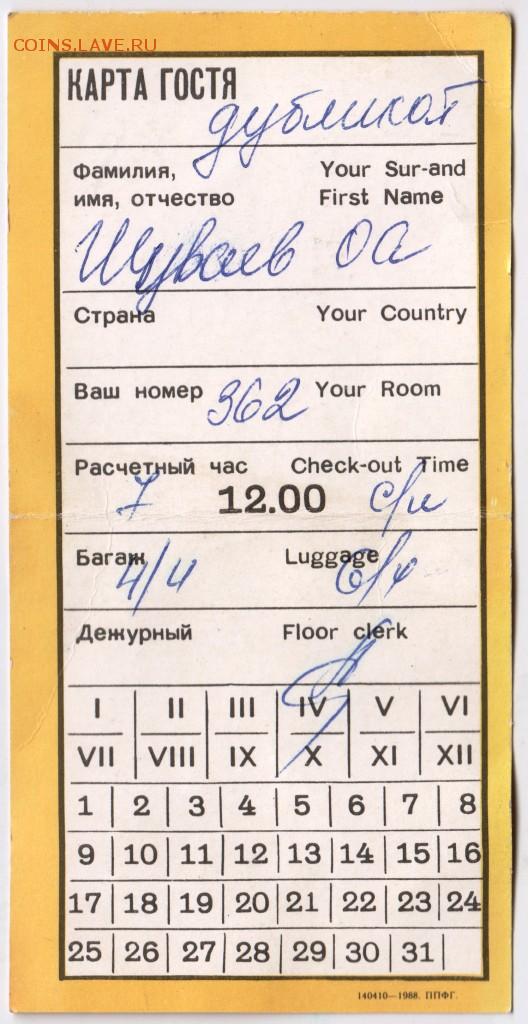 COINS.LAVE.РУ
КАРТА ГОСТЯ
дубликат
Фамилия, Your Sur-and
имя, отчество First Name
Шуваев ОА
Страна Your Country
Ваш номер 362 Your Room
Расчетный час Check-out Time
7 12.00 с/и
Багаж Luggage
Дежурный Floor clerk
I II III IV V VI
VII VIII IX X XI XII
1 2 3 4 5 6 7 8
9 10 11 12 13 14 15 16
17 18 19 20 21 22 23 24
25 26 27 28 29 30 31
140410—1988. ППФГ.